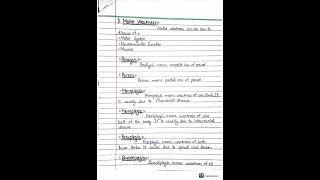 5. Motor Weakness:-
Motor weakness can be due to
disease of:
• Motor System
• Neuromuscular Junction
• Muscles
• Paralysis:-
Paralysis means complete loss of power.
• Paresis:-
Paresis means partial loss of power.
• Monoplegia:-
Monoplegia means weakness of one limb. It
is usually due to intracranial disease.
• Hemiplegia:-
Hemiplegia means weakness of one
half of the body. It is usually due to intracranial
disease.
• Paraplegia:-
Paraplegia means weakness of both
lower limbs. It occurs due to spinal cord lesion.
• Quadriplegia:-
Quadriplegia means weakness of all